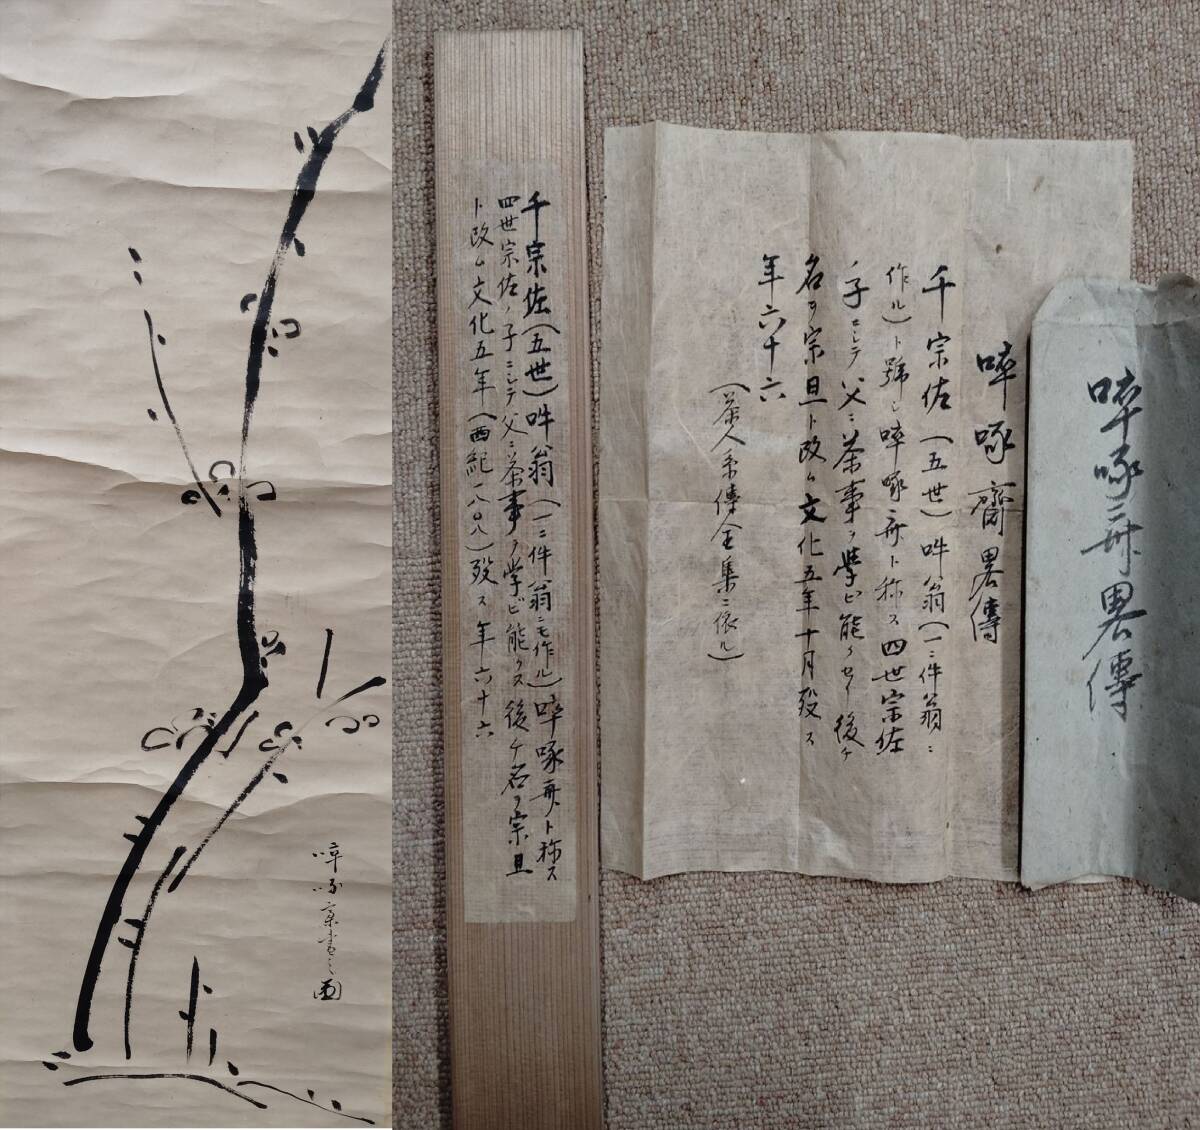 千宗佐（五世）吽翁（一ニ件翁ニモ作ル）啐啄斎ト称ス
四世宗佐ノ子ニシテ父ニ茶事ヲ学ビ能クス後チ名ヲ宗旦
ト改ム文化五年（西紀一八〇八）歿ス年六十六
啐啄齋畧傳
千宗佐（五世）吽翁（一ニ件翁ニ
作ル）ト號シ啐啄斎ト称ス四世宗佐
ノ子ニシテ父ニ茶事ヲ學ビ能クセリ後チ
名ヲ宗旦ト改ム文化五年十月歿ス
年六十六
（茶人系傳全集ニ依ル）
啐啄斎畧傳